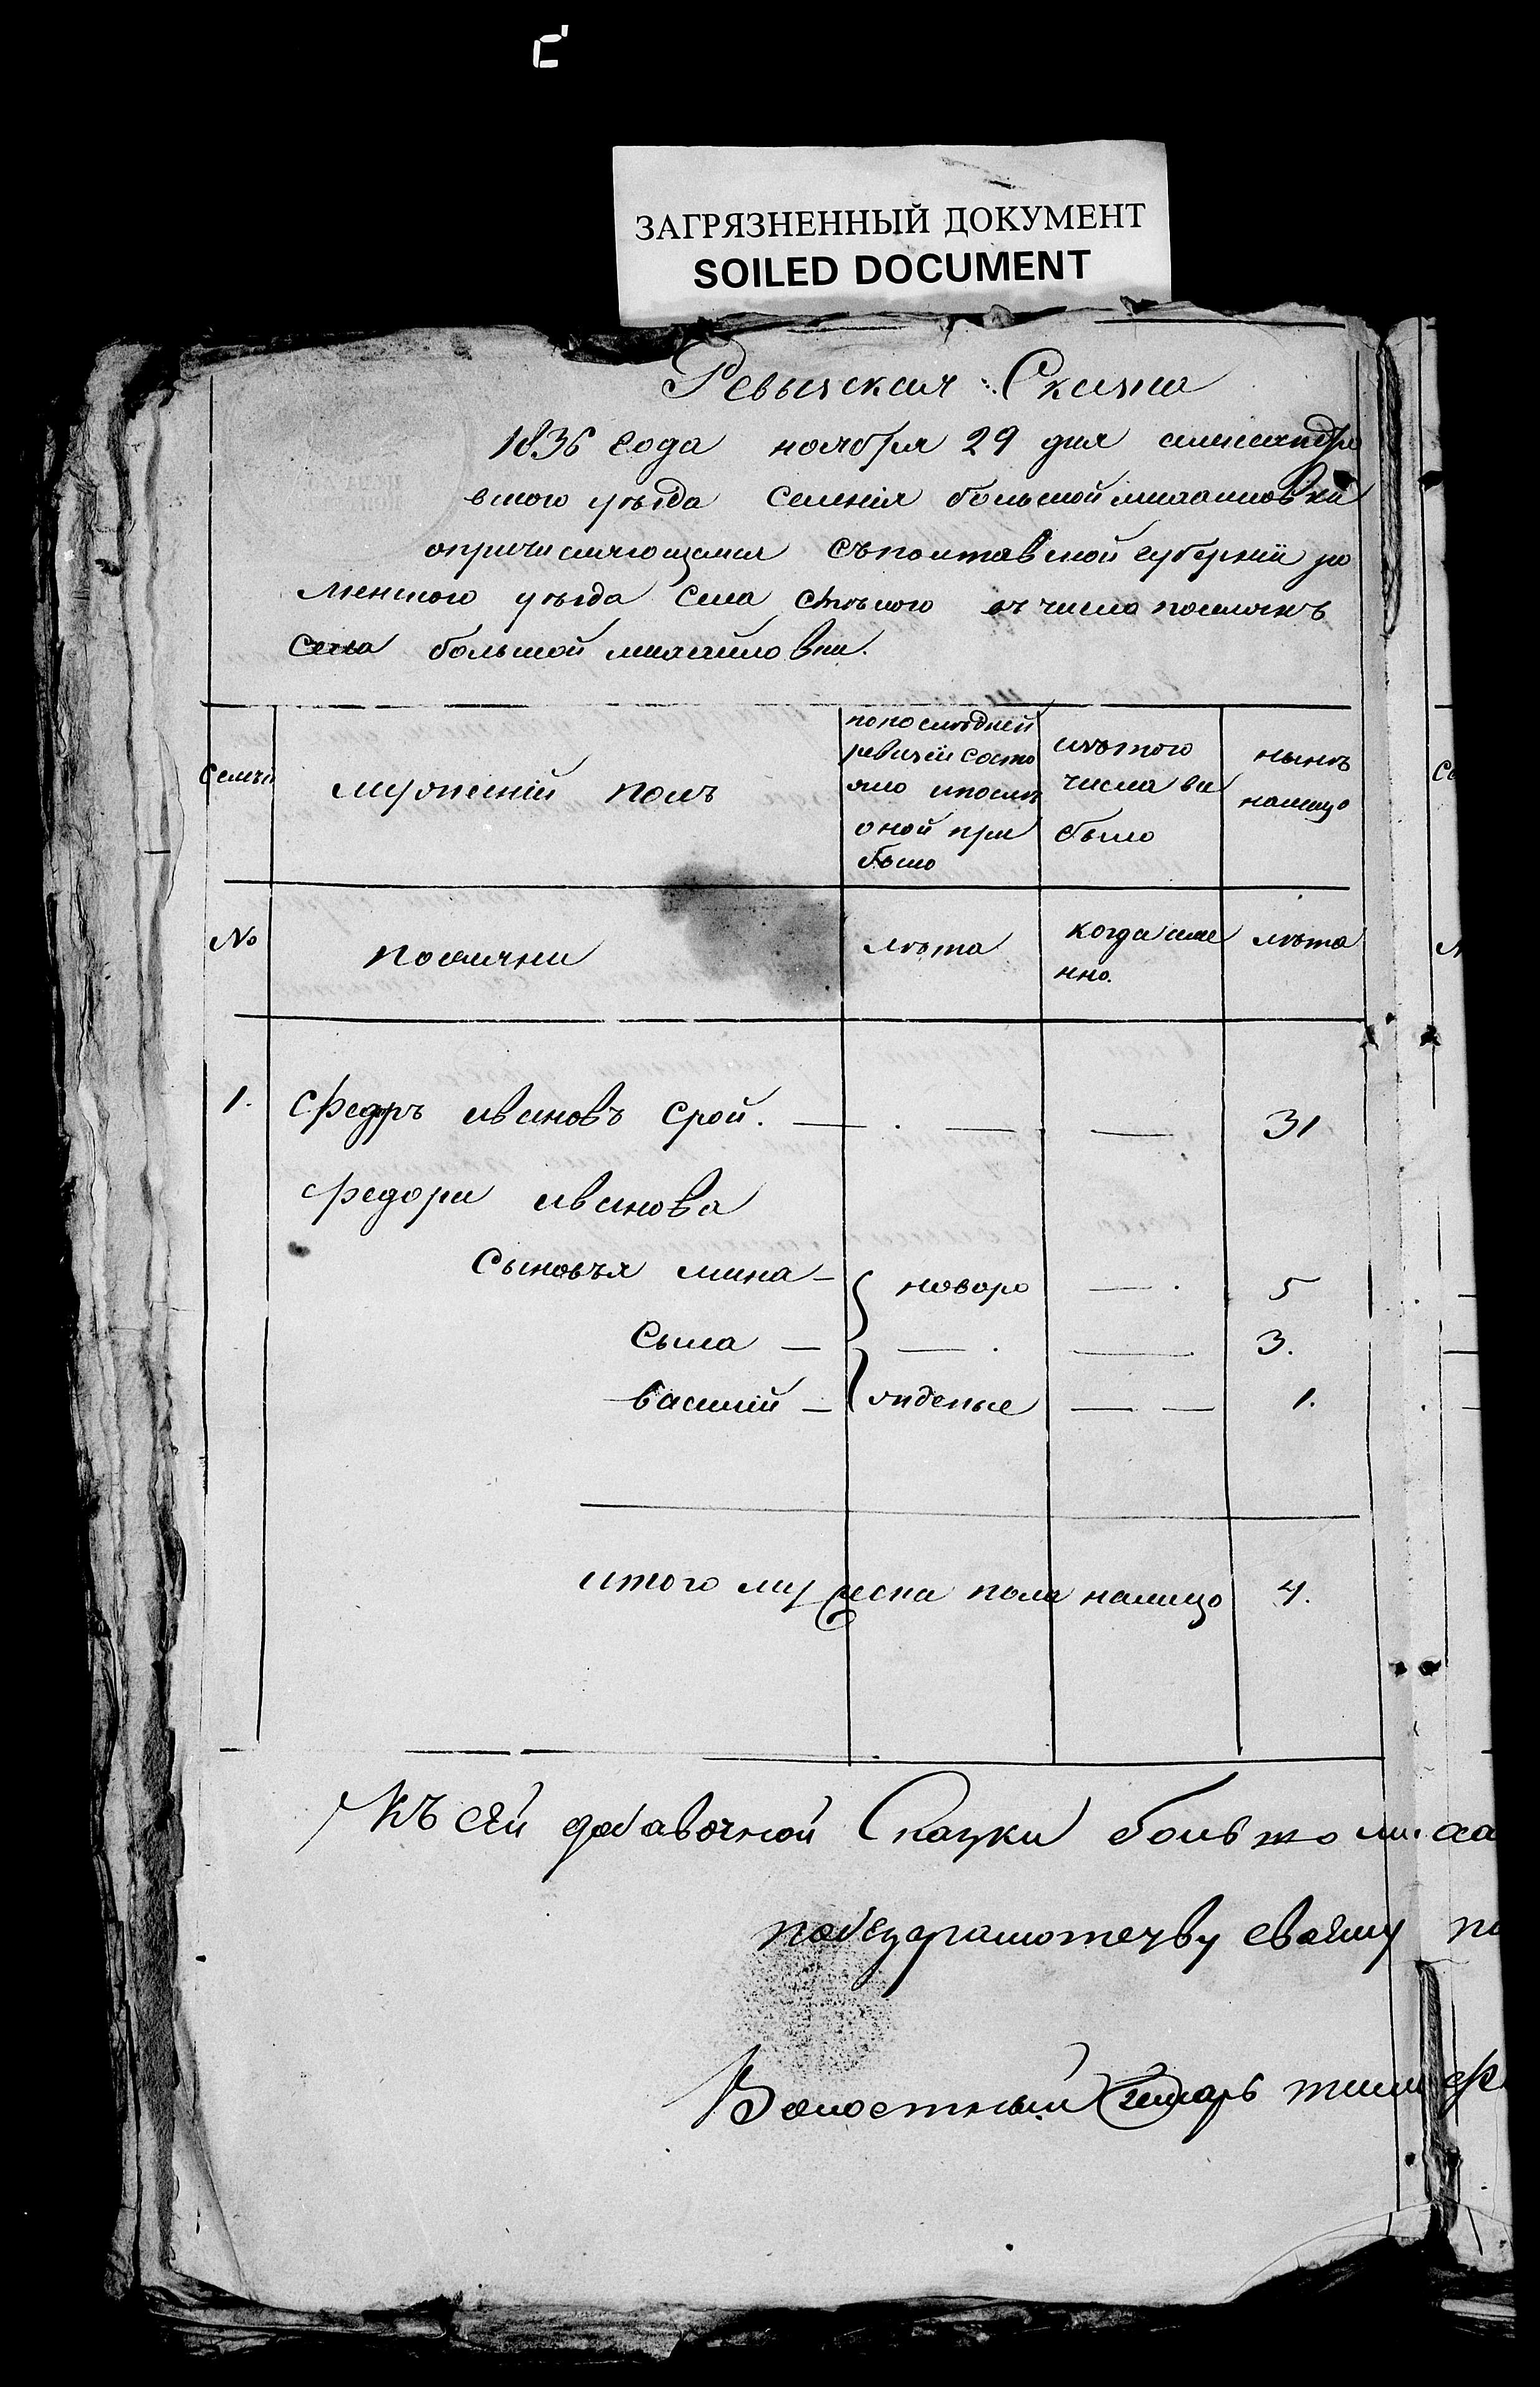 ЗАГРЯЗНЕННЫЙ ДОКУМЕНТ
SOILED DOCUMENT
Ревызская Сказка
1836 года ноября 29 дня александро
вского уѣзда Селенія большой михаиловки
опричисляющемся съполтавской губерніи ро
менского уѣзда Села въ число поселянъ
Села большой михайловки.
Семьи
мужескій полъ
попослѣдней
ревизіи состо
яло ипослѣ
оной при
было
исъ того
числа вы
было
нынѣ
налицо
№
поселяни
лѣта
когда име
нно.
лѣта
1. Федръ ивановъ Срой. — . — — 31
Федора иванова
Сыновъя мина — новоро — . 5
Сыла — — . — 3.
василій — жденые — — 1.
итого мужеска пола налицо 4.
Къ сей добавочной Сказки
побезграмотству своему по
Волостный писарь